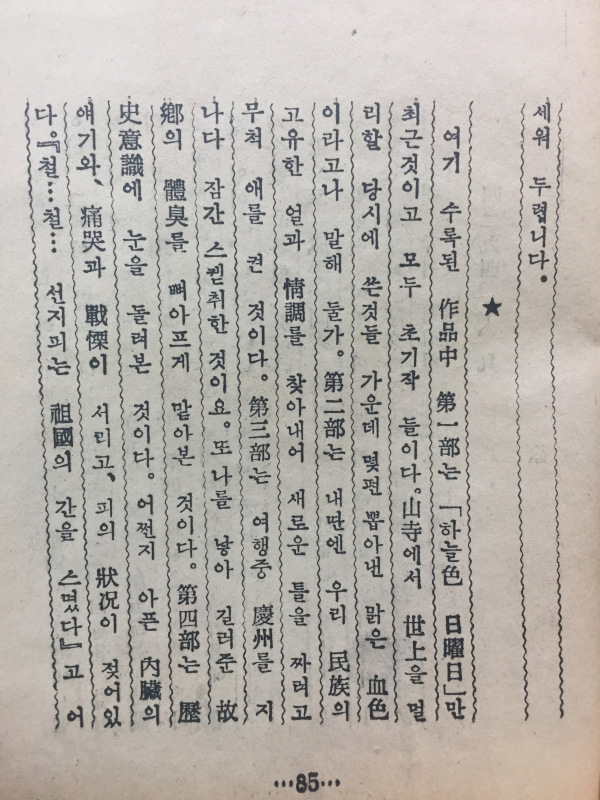 세워 두렵니다.
★
여기 수록된 作品中 第一部는 「하늘色 日曜日」만
최근것이고 모두 초기작 들이다. 山寺에서 世上을 멀
리할 당시에 쓴것들 가운데 몇편 뽑아낸 맑은 血色
이라고나 말해 둘가. 第二部는 내딴엔 우리 民族의
고유한 얼과 情調를 찾아내어 새로운 틀을 짜려고
무척 애를 켠 것이다. 第三部는 여행중 慶州를 지
나다 잠간 스켙취한 것이요. 또 나를 낳아 길러준 故
鄕의 體臭를 뼈아프게 맡아본 것이다. 第四部는 歷
史意識에 눈을 돌려본 것이다. 어쩐지 아픈 內臟의
얘기와, 痛哭과 戰慄이 서리고, 피의 狀况이 젖어있
다. 『철…철… 선지피는 祖國의 간을 스몄다』고 어
…85…